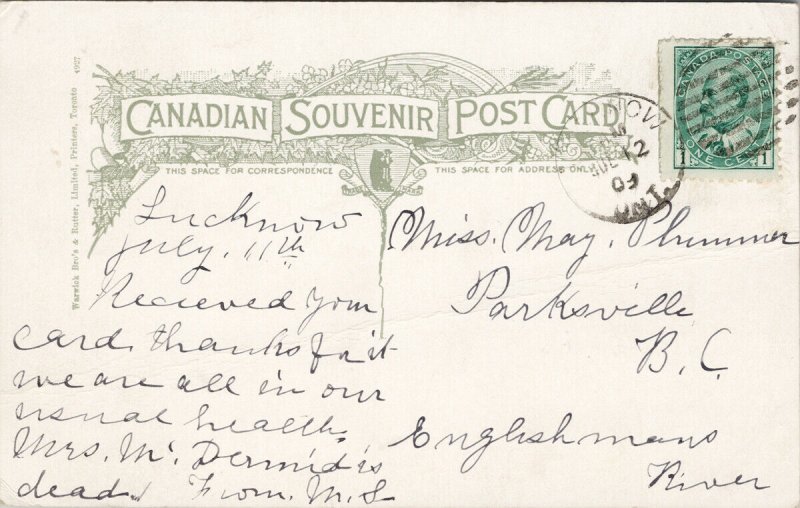 CANADIAN SOUVENIR POST CARD
THIS SPACE FOR CORRESPONDENCE
THIS SPACE FOR ADDRESS ONLY
Warwick Bro's & Rutter, Limited, Printers, Toronto 4927
CANADA POSTAGE
1 ONE CENT 1
NOW
JUL 12
09
ONT.
Lucknow
July. 11th
Recieved your
card thanks for it
we are all in our
usual health.
Mrs. Mc Dermid is
dead. From. M. S
Miss. May. Plummer
Parksville
B. C.
Englishmans
River